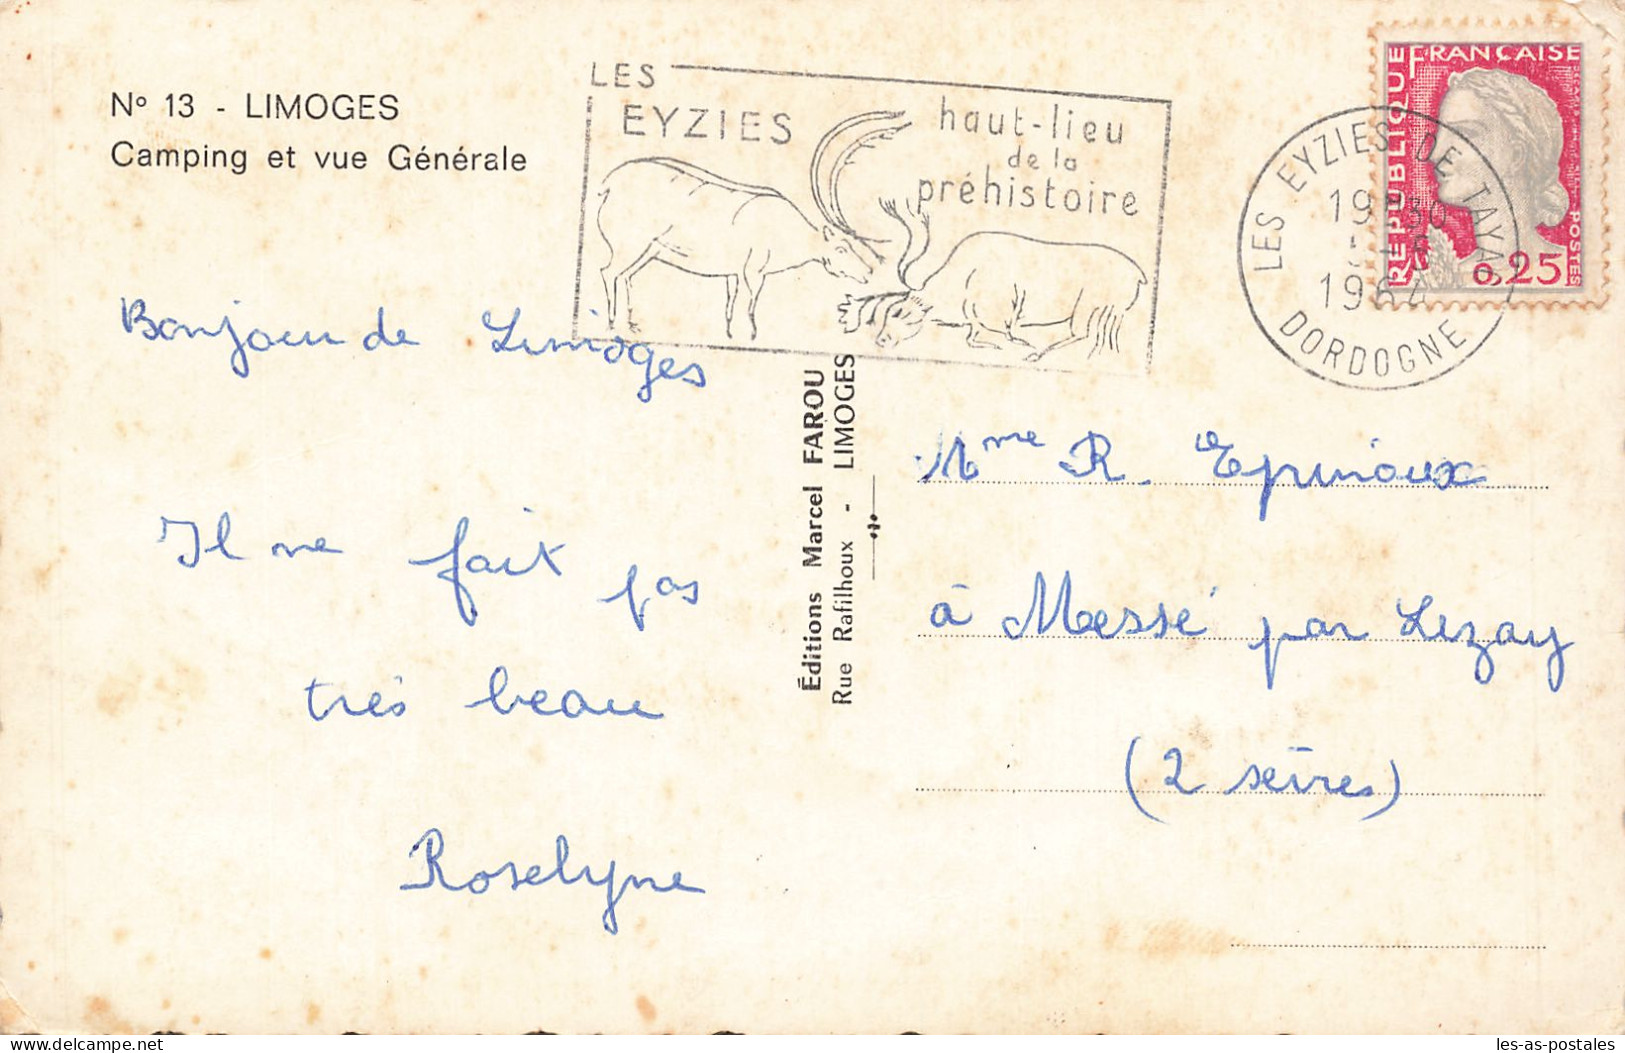 N° 13 - LIMOGES
Camping et vue Générale
LES
EYZIES
haut-lieu
de la
préhistoire
RÉPUBLIQUE FRANÇAISE
POSTES
0,25
LES EYZIES DE TAYAC
19 30
6
1964
DORDOGNE
Bonjour de Limoges
Il ne fait pas
très beau
Roselyne
Éditions Marcel FAROU
Rue Rafilhoux - LIMOGES
Mme R. Epinoux
à Messé par Lezay
(2 seires)
les-as-postales